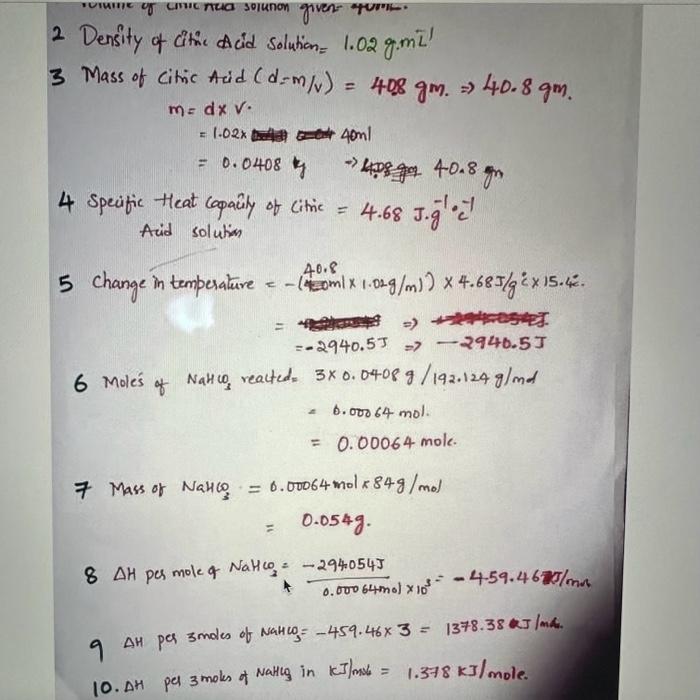 Volume of Citric Acid solution given= 40mL.
2 Density of Citric Acid Solution= 1.02 g.mL⁻¹
3 Mass of Citric Acid (d=m/v) = 408 gm. ⇒ 40.8 gm.
m= d x v.
= 1.02x 40ml
= 0.0408 kg → 40.8 gm
4 Specific Heat Capacity of Citric = 4.68 J.g⁻¹°c⁻¹
Acid solution
40.8
5 Change in temperature = -(40ml x 1.02g/ml) x 4.68J/g°c x 15.4°c.
= ⇒
=-2940.5J ⇒ -2940.5J
6 Moles of NaHCO₃ reacted= 3 x 0.0408 g /192.124 g/mol
= 0.00064 mol.
= 0.00064 mole.
7 Mass of NaHCO₃ = 0.00064 mol x 84g/mol
= 0.054g.
8 ΔH per mole of NaHCO₃ = -294054J / 0.00064mol x10³ = -459.46 J/mol
9 ΔH per 3moles of NaHCO₃= -459.46 x 3 = 1378.38 J/mol.
10. ΔH per 3 moles of NaHCO₃ in kJ/mol = 1.378 kJ/mole.